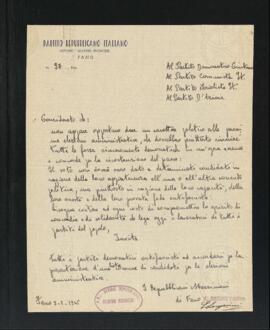 PARTITO REPUBBLICANO ITALIANO
FANO
Al Partito Democratico Cristiano
Al Partito Comunista It.
Al Partito Socialista It.
Al Partito d'Azione
Considerato che:
non appare opportuno dare un carattere politico alle prossime
elezioni amministrative, che dovrebbero piuttosto unire
tutte le forze sinceramente democratiche in un'opera
e concorde per la ricostruzione del paese;
Il voto non dovrà essere dato a determinati candidati in
ragione della loro appartenenza all'una o all'altra corrente
politica, ma piuttosto in ragione della loro capacità, della
loro onestà e della loro provata fede antifascista;
bisogna evitare ad ogni costo di compromettere lo spirito di
concordia e di solidarietà che lega oggi i lavoratori di tutti i
partiti del popolo,
Invita
Tutti i partiti democratici antifascisti ad accordarsi per la
presentazione d'una di candidati per le elezioni
amministrative.
I Repubblicani Mazziniani
di Fano
Fano 1945